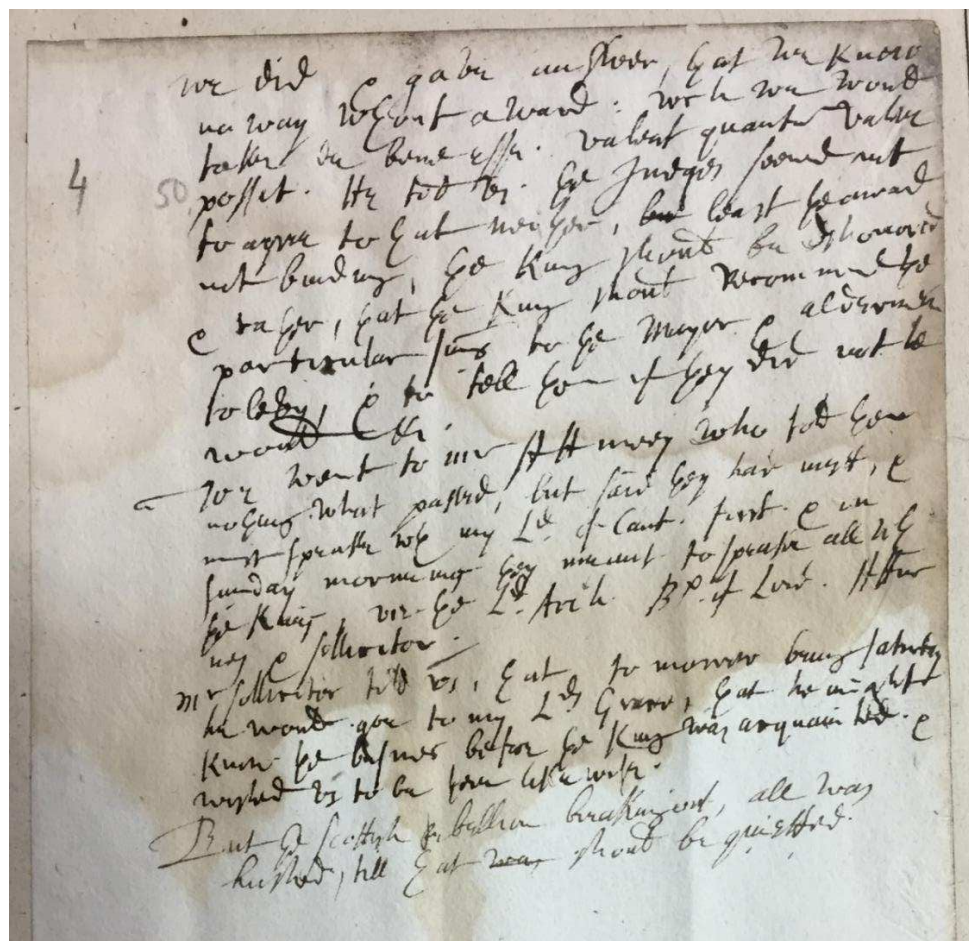 we did & gave answer, that we knew
no way without award: wch we would
take de bene esse. valeat quantu valere
4 50 possit. He told vs. the Judges seemd not
to agree to that neither, but least the award
not binding, the King should be dishonored
& rather, that the King should Recommend the
particular to the Mayor & aldermen
to & to tell them if they did not he
would
We went to mr Atturney who told them
nothing what passed, but said they had mett, &
must speake wth my Ld. of Cant. first. & on
sunday morning they meant to speake all wth
the King, viz. the Ld. Arch. Bp. of Lond. Attur
ney & sollicitor.
Mr sollicitor told vs, that to morrow being saturday
he would goe to my Lds Grace, that he might
know the busines before the King was acquainted. &
wished vs to be there likewise.
But the scottish rebellion breaking out, all was
hushed, till that was should be quietted.